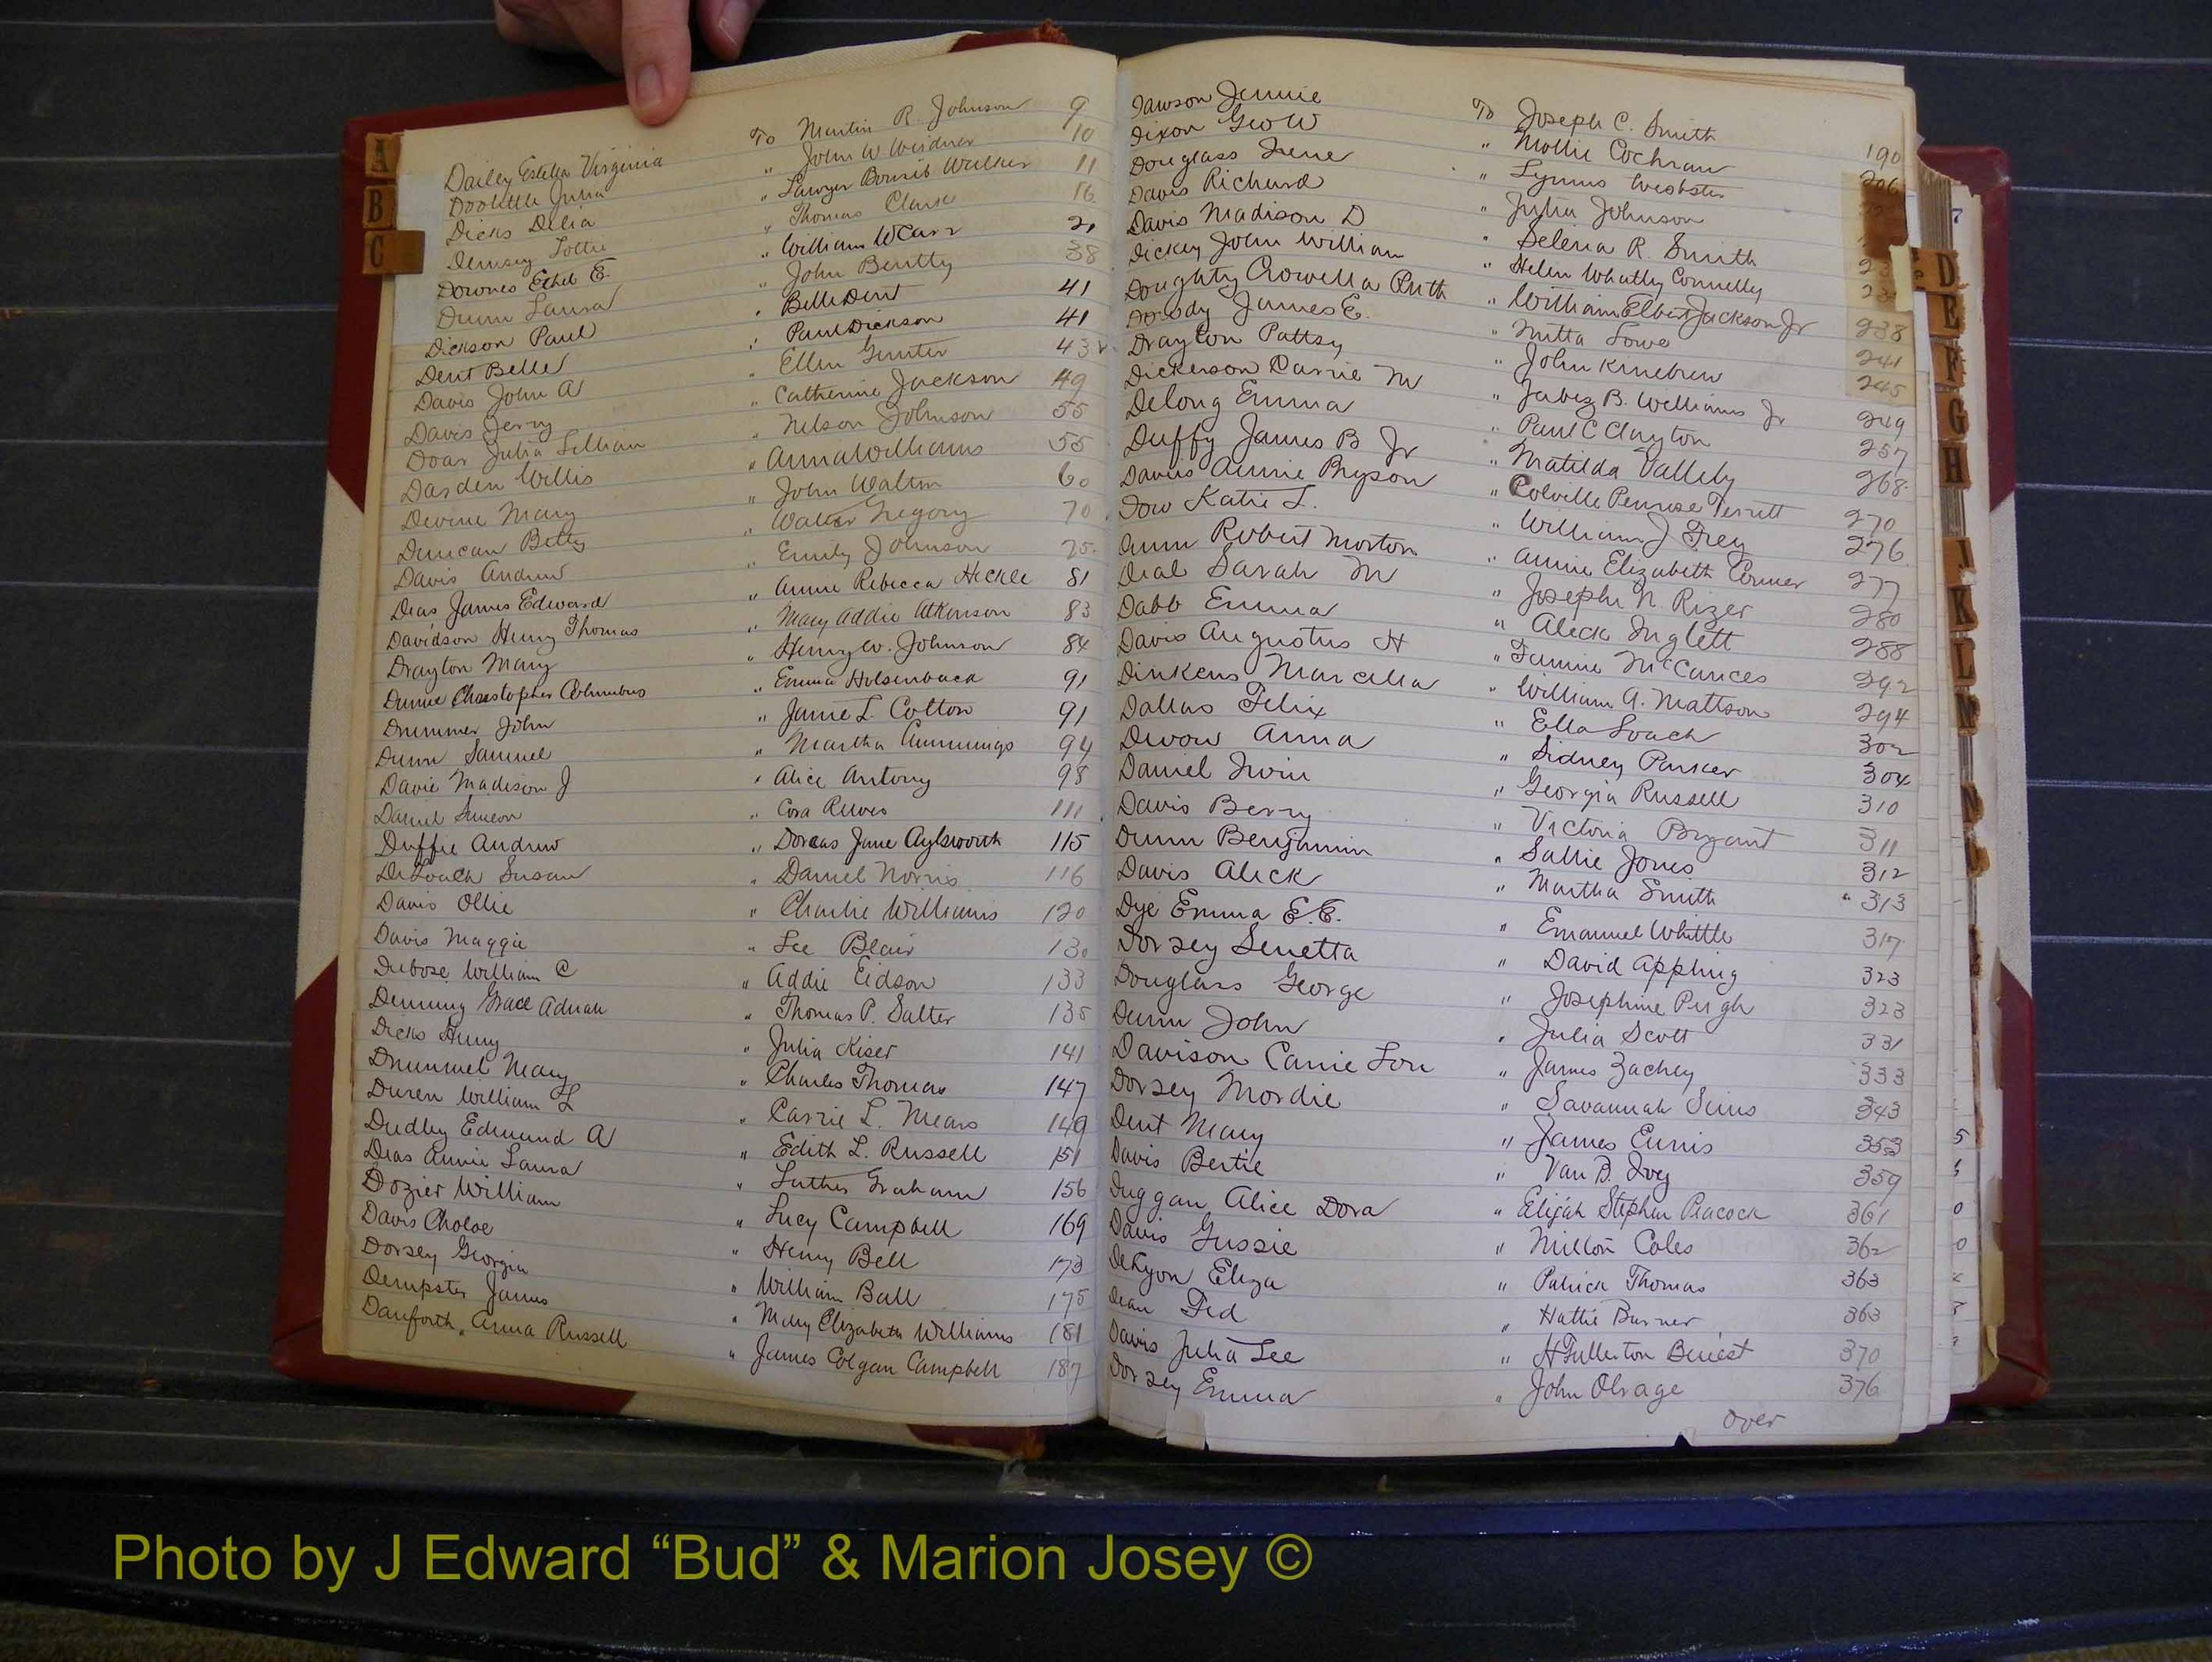 Dailey Estella Virginia To Martin R. Johnson 9
Doolittle Julia " John W. Weidner 10
Dicks Delia " Sawyer Walker 11
Dempsey Lottie " Thomas Clark 16
Downes Ethel E. " William W Carr 21
Dunn Laura " John Bentty 38
Dickson Paul " Belle Dent 41
Dent Belle " Paul Dickson 41
Davis John A " Ellen Gunter 43
Davis Jerry " Catherine Jackson 49
Doar Julia Lillian " Nelson Johnson 55
Darden Willis " Anna Williams 55
Devine Mary " John Walton 60
Duncan Betty " Walter Gregory 70
Davis Andrew " Emily Johnson 75
Deas James Edward " Annie Rebecca Hickle 81
Davidson Henry Thomas " Mary Addie Atkinson 83
Drayton Mary " Henry W. Johnson 84
Dunne Christopher Columbus " Emma Holsenback 91
Drummer John " Janie L. Cotton 91
Dunn Samuel " Martha Cummings 94
Davie Madison J " Alice Antony 98
Daniel Simeon " Cora Reeves 111
Duffie Andrew " Dorcas Jane Aylsworth 115
DeLoach Susan " Daniel Norris 116
Davis Ollie " Charlie Williams 120
Davis Maggie " Lee Blair 130
Dubose William C " Addie Eidson 133
Denning Grace Adnah " Thomas P. Salter 135
Dicks Henry " Julia Kiser 141
Drummel Mary " Charles Thomas 147
Duren William L " Carrie L. Mears 149
Dudley Edmund A " Edith L. Russell 151
Deas Annie Laura " Luther Graham 156
Dozier William " Lucy Campbell 169
Davis Choloe " Henry Bell 173
Dorsey Georgia " William Ball 175
Dempster James " Mary Elizabeth Williams 181
Danforth, Anna Russell " James Colgan Campbell 187
Dawson Jennie To Joseph C. Smith 190
Dixon Geo W " Mollie Cochran 206
Douglass Irene " Lynus Webster
Davis Richard " Julia Johnson
Davis Madison D " Selena R. Smith
Dickey John William " Helen Whatley Connelly
Doughty Crowella Ruth " William Elbert Jackson Jr 238
James E. " Mitta Lowe 241
Drayton Pattsy " John Kinebrew 245
Dickerson Carrie M " Jabez B. Williams Jr 249
Delong Emma " Paul C Clayton 257
Duffy James B Jr " Matilda Vallely 268
Davis Annie Bryson " Colville Penrose Terrett 270
Dow Katie L. " William J Frey 276
Dunn Robert Morton " Annie Elizabeth Conner 277
Deal Sarah M " Joseph N. Rizer 280
Dabb Emma " Aleck Inglett 288
Davis Augustus H " Fannie McCances 292
Dinkens Marcella " William A. Mattson 294
Dallas Felix " Ella Loach 302
Devow Anna " Sidney Parker 304
Daniel Irvin " Georgia Russell 310
Davis Berry " Victoria Bryant 311
Dunn Benjamin " Sallie Jones 312
Davis Aleck " Martha Smith " 313
Dye Emma E.E. " Emanuel Whittle 317
Dorsey Senetta " David Appling 323
Douglass George " Josephine Pugh 323
Dunn John " Julia Scott 331
Davison Carrie Lou " James Zachey 333
Dorsey Mordie " Savannah Sims 343
Dent Mary " James Ennis 353
Davis Bertie " Van B. Ivey 359
Duggan Alice Dora " Elijah Stephen Peacock 361
Davis Gussie " Milton Coles 362
DeLyon Eliza " Patrick Thomas 363
Dean Fed " Hattie Burner 363
Davis Julia Lee " H Fullerton 370
Dorsey Emma " John Olvage 376
over
A
B
C
D
E
F
G
H
J
K
L
M
N
Photo by J Edward “Bud” & Marion Josey ©